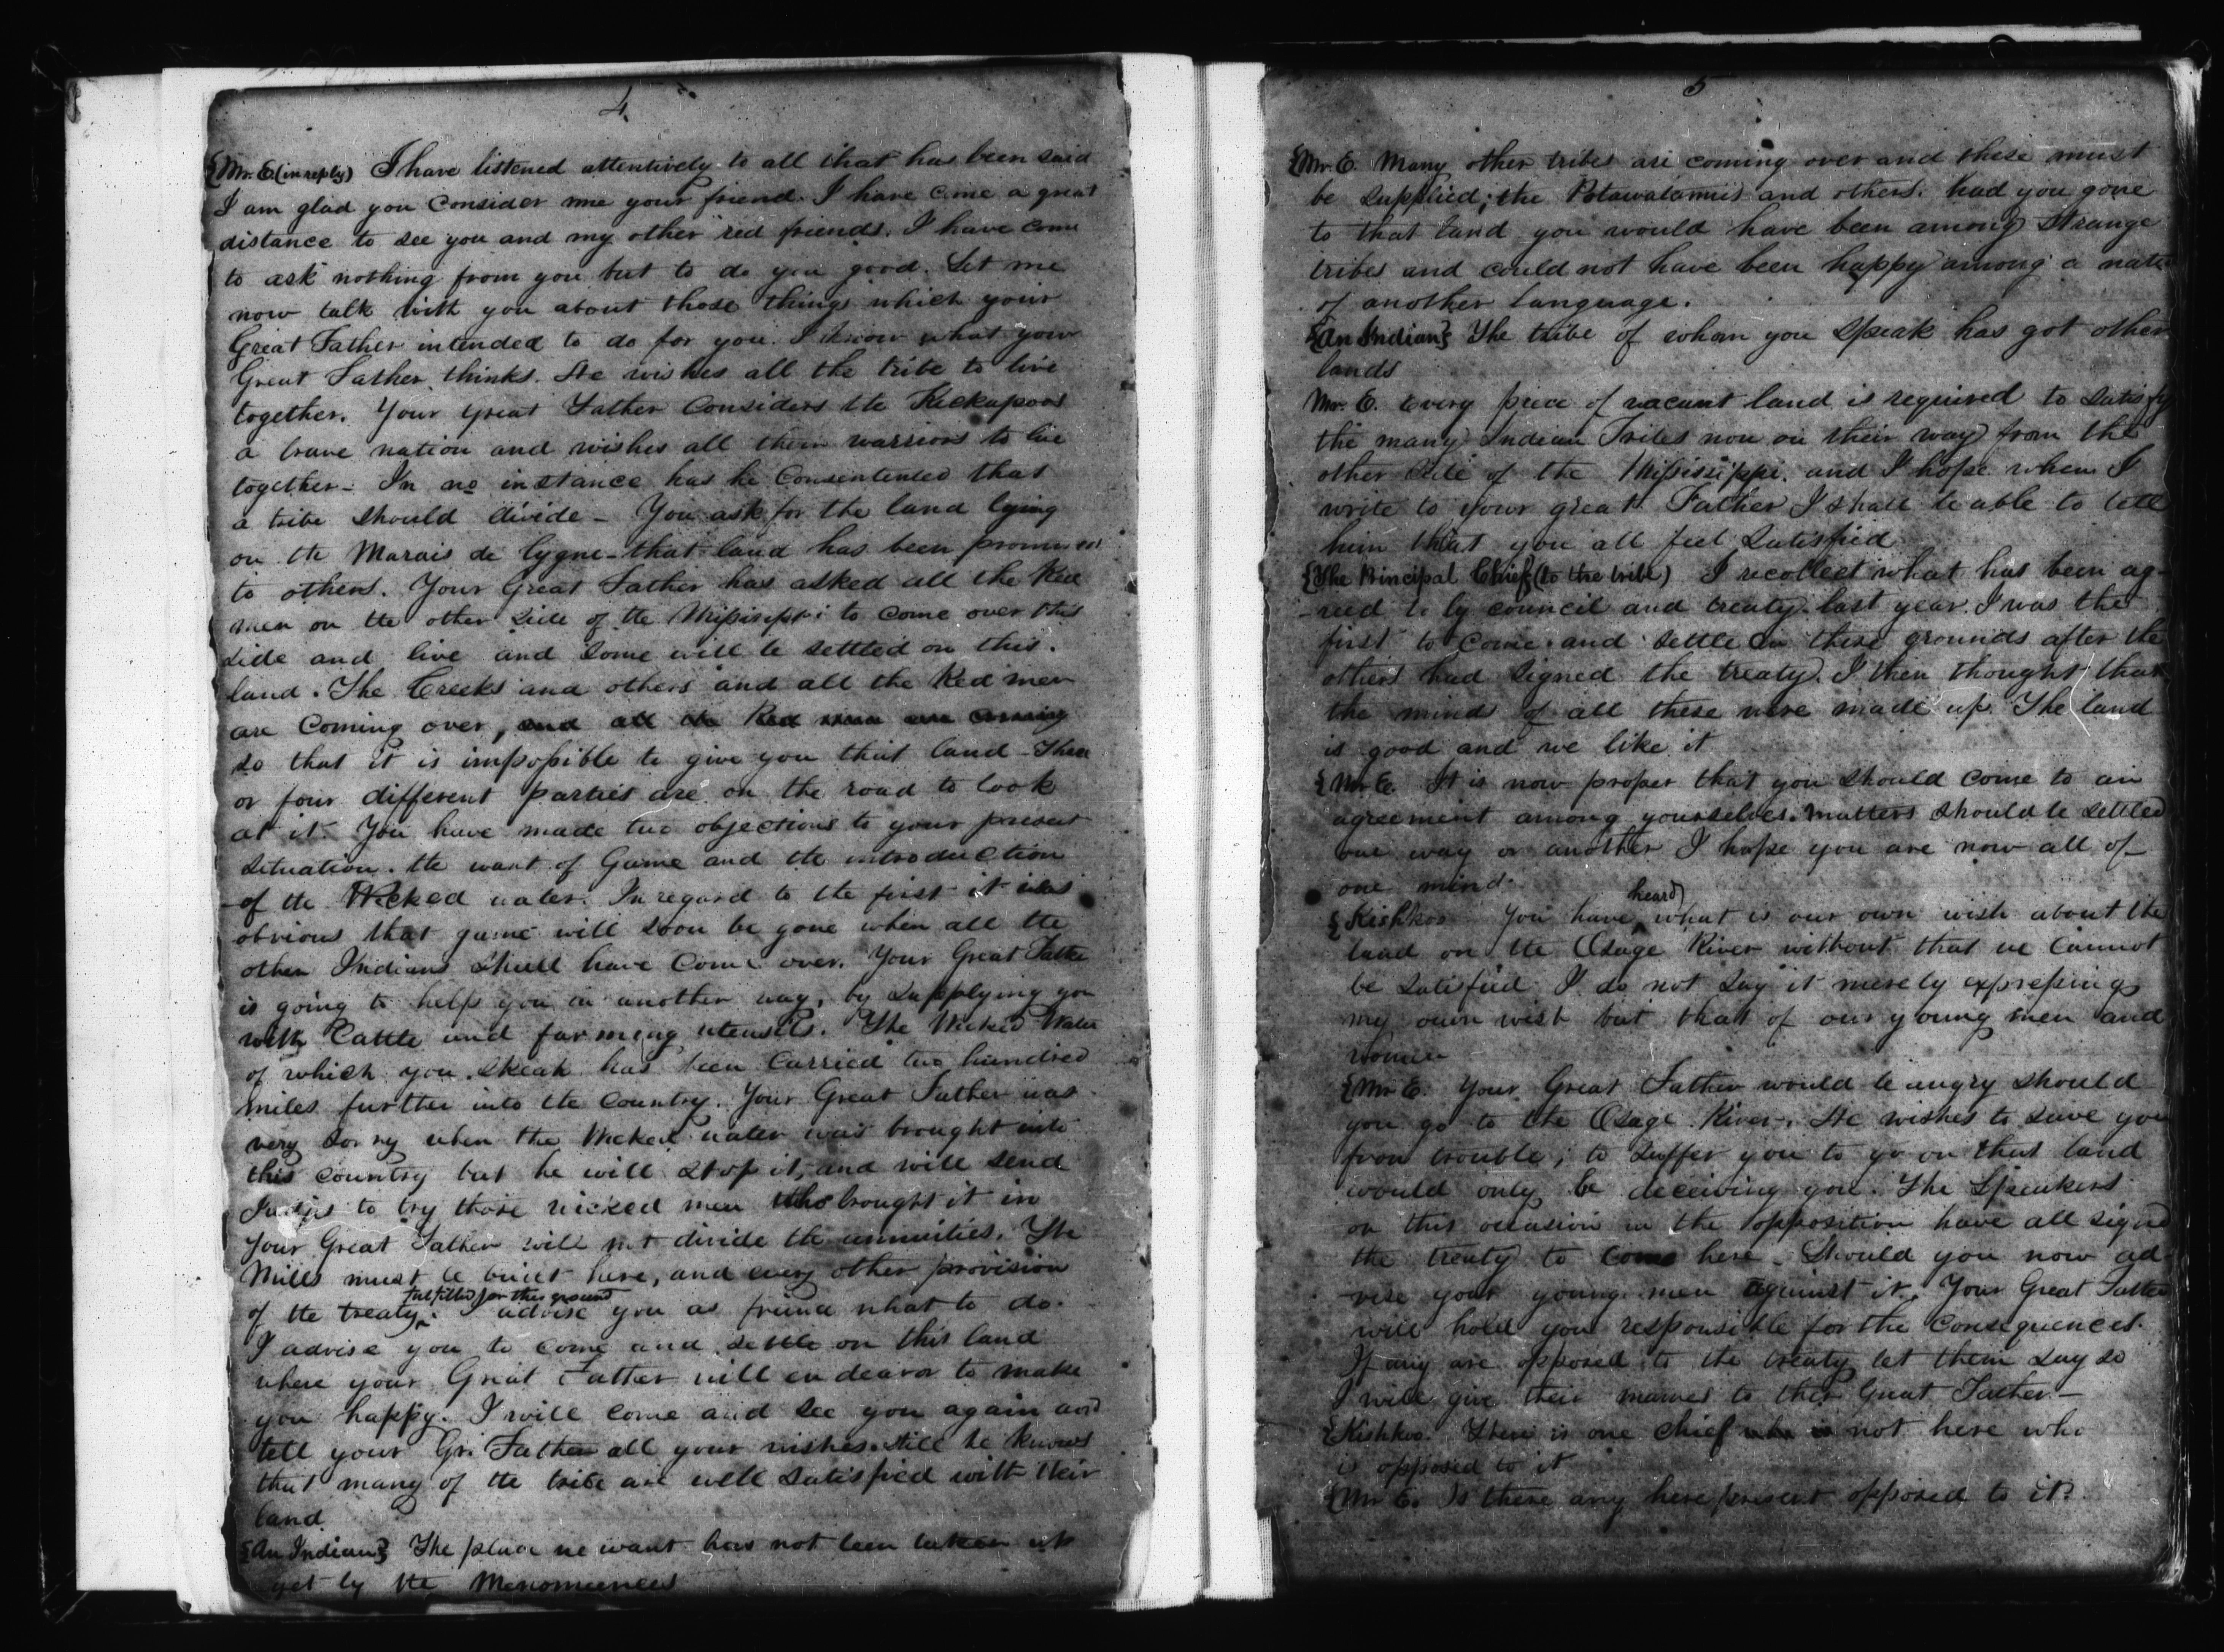 4
{Mr. E. (in reply) I have listened attentively to all that has been said
I am glad you consider me your friend. I have come a great
distance to see you and my other red friends. I have come
to ask nothing from you but to do you good. Let me
now talk with you about those things which your
Great Father intended to do for you. I know what your
Great Father thinks. He wishes all the tribe to live
together. Your great Father Considers the Kickapoos
a brave nation and wishes all their warriors to live
together - In no instance has he Consentented that
a tribe should divide - You ask for the land lying
on the Marais de Cygne - that land has been promised
to others. Your Great Father has asked all the Red
men on the other side of the Missisippi to come over this
side and live and some will be settled on this.
land. The Creeks and others and all the Red men
are coming over, and all the Red men are coming
so that it is impossible to give you that land - Three
or four different parties are on the road to look
at it. You have made two objections to your present
situation. the want of Game and the introduction
of the Wicked water. In regard to the first it was
obvious that game will soon be gone when all the
other Indians shall have come over. Your Great Father
is going to help you in another way, by supplying you
with Cattle and farming utensils. The Wicked Water
of which you speak has been Carried two hundred
miles further into the Country. Your Great Father was
very sorry when the Wicked water was brought into
this country but he will stop it, and will send
Judges to try those wicked men who brought it in
Your Great Father will not divide the annuities. The
Mills must be built here, and every other provision
fulfilled for this ground
of the treaty. I advise you as friend what to do.
I advise you to come and settle on this land
where your Great Father will endeavor to make
you happy. I will come and see you again and
tell your Gr. Father all your wishes. Still he knows
that many of the tribe are well satisfied with their
land
{An Indian} The place we want has not been taken up
yet by the Menomeenees
5
{Mr. E. Many other tribes are coming over and these must
be supplied; the Potawatamies and others. had you gone
to that land you would have been among strange
tribes and could not have been happy among a
of another language.
{An Indian} The tribe of whom you speak has got other
lands
Mr. E. Every piece of vacant land is required to satisfy
the many Indian Tribes now on their way from the
other side of the Mississippi. and I hope when I
write to your great Father I shall be able to tell
him that you all feel satisfied
{The Principal Chief (to the tribe) I recollect what has been ag-
-reed to by council and treaty last year. I was the
first to come and settle on these grounds after the
others had signed the treaty. I then thought that
the minds of all these were made up. The land
is good and we like it
{Mr. E. It is now proper that you should come to an
agreement among yourselves. Matters should be settled
one way or another I hope you are now all of
one mind.
heard
{Kishkoo You have what is our own wish about the
land on the Osage River without that we cannot
be satisfied. I do not say it merely expressing
my own wish but that of our young men and
women
{Mr. E. Your Great Father would be angry should
you go to the Osage River. He wishes to save you
from trouble; to suffer you to go on that land
would only be deceiving you. The Speakers
on this occasion in the opposition have all signed
the treaty to come here - Should you now ad-
vise your young men against it. Your Great Father
will hold you responsible for the consequences.
If any are opposed to the treaty let them say so
I will give their names to their Great Father -
{Kishkoo. There is one chief who is not here who
is opposed to it
{Mr E. Is there any here present opposed to it?